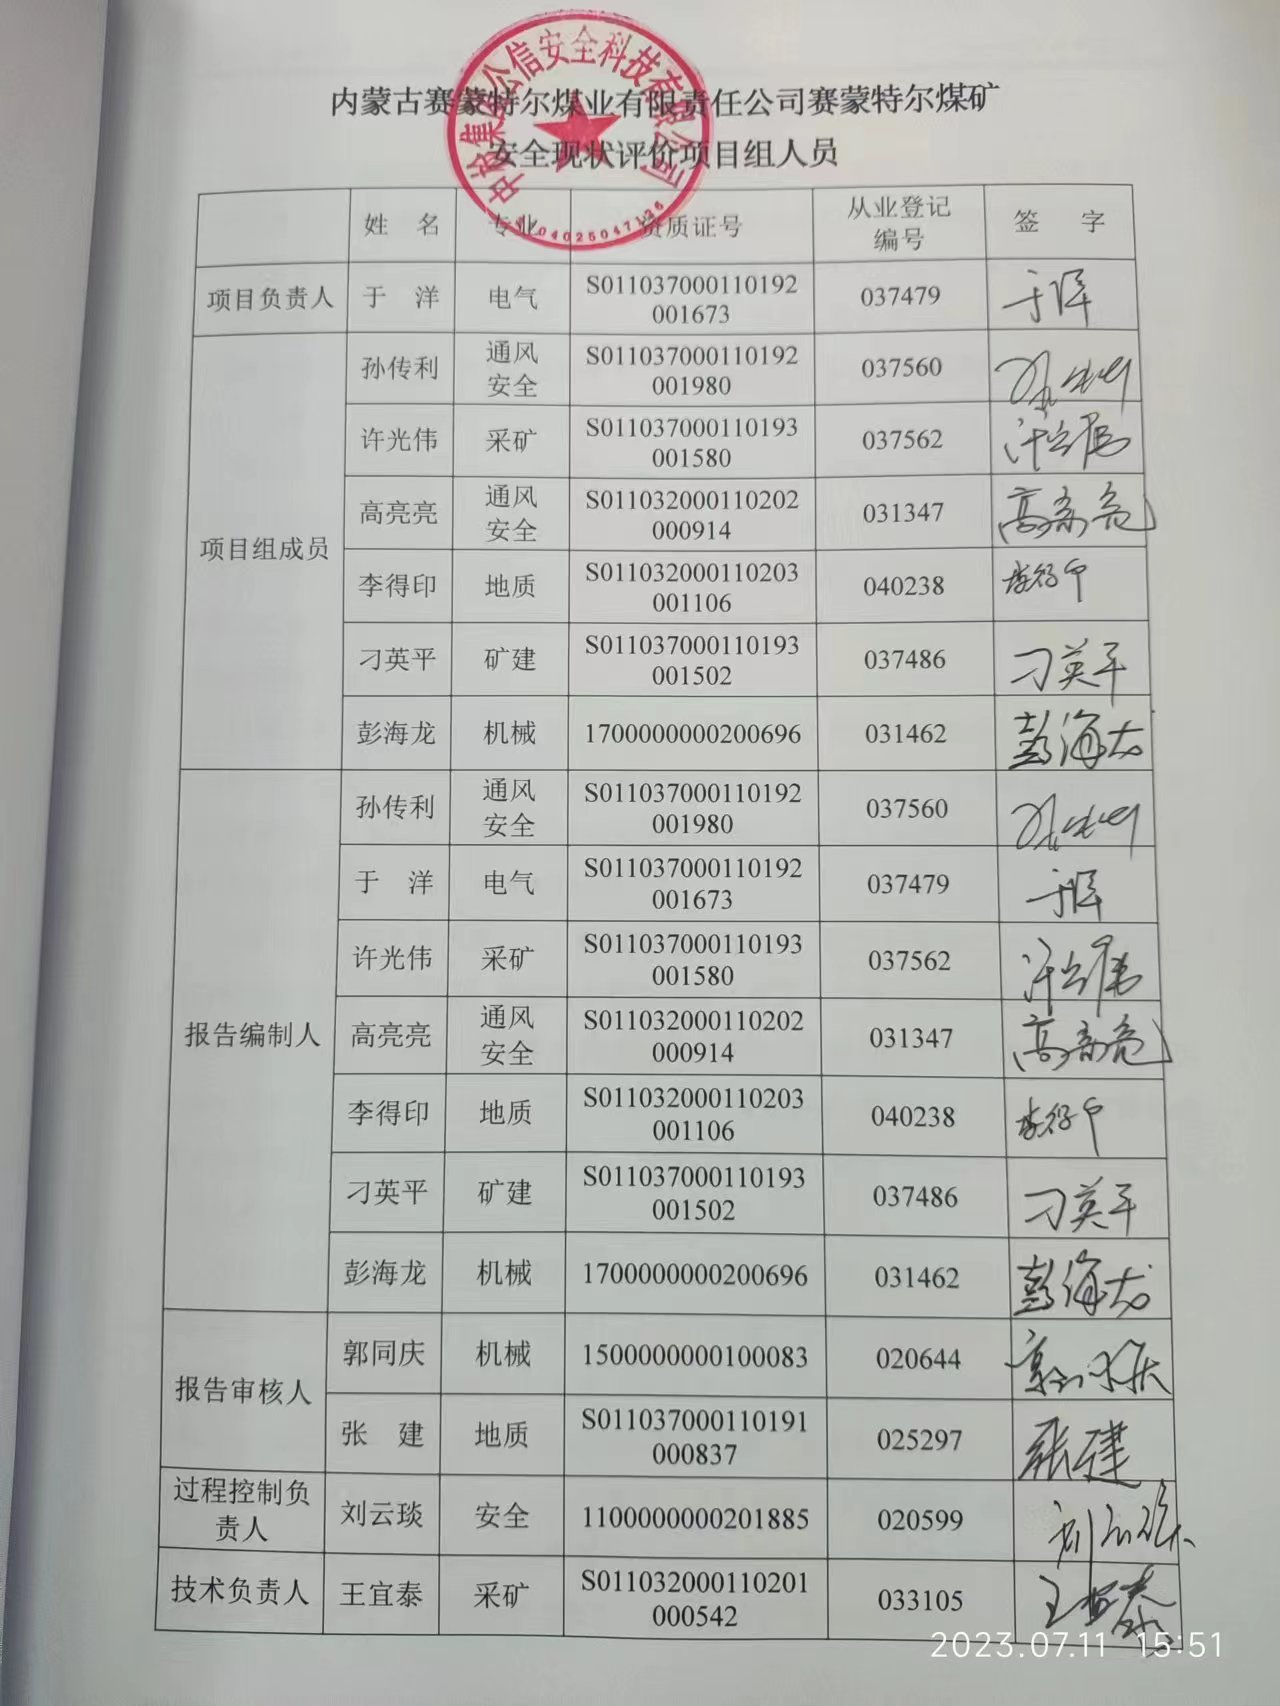 中政集团公信安全科技有限公司
04025047136
内蒙古赛蒙特尔煤业有限责任公司赛蒙特尔煤矿
安全现状评价项目组人员
姓 名 专业 资质证号 从业登记编号 签 字
项目负责人 于 洋 电气 S011037000110192001673 037479 于洋
项目组成员 孙传利 通风安全 S011037000110192001980 037560 孙传利
许光伟 采矿 S011037000110193001580 037562 许光伟
高亮亮 通风安全 S011032000110202000914 031347 高亮亮
李得印 地质 S011032000110203001106 040238 李得印
刁英平 矿建 S011037000110193001502 037486 刁英平
彭海龙 机械 1700000000200696 031462 彭海龙
报告编制人 孙传利 通风安全 S011037000110192001980 037560 孙传利
于 洋 电气 S011037000110192001673 037479 于洋
许光伟 采矿 S011037000110193001580 037562 许光伟
高亮亮 通风安全 S011032000110202000914 031347 高亮亮
李得印 地质 S011032000110203001106 040238 李得印
刁英平 矿建 S011037000110193001502 037486 刁英平
彭海龙 机械 1700000000200696 031462 彭海龙
报告审核人 郭同庆 机械 1500000000100083 020644 郭同庆
张 建 地质 S011037000110191000837 025297 张建
过程控制负责人 刘云琰 安全 1100000000201885 020599 刘云琰
技术负责人 王宜泰 采矿 S011032000110201000542 033105 王宜泰
2023.07.11 15:51